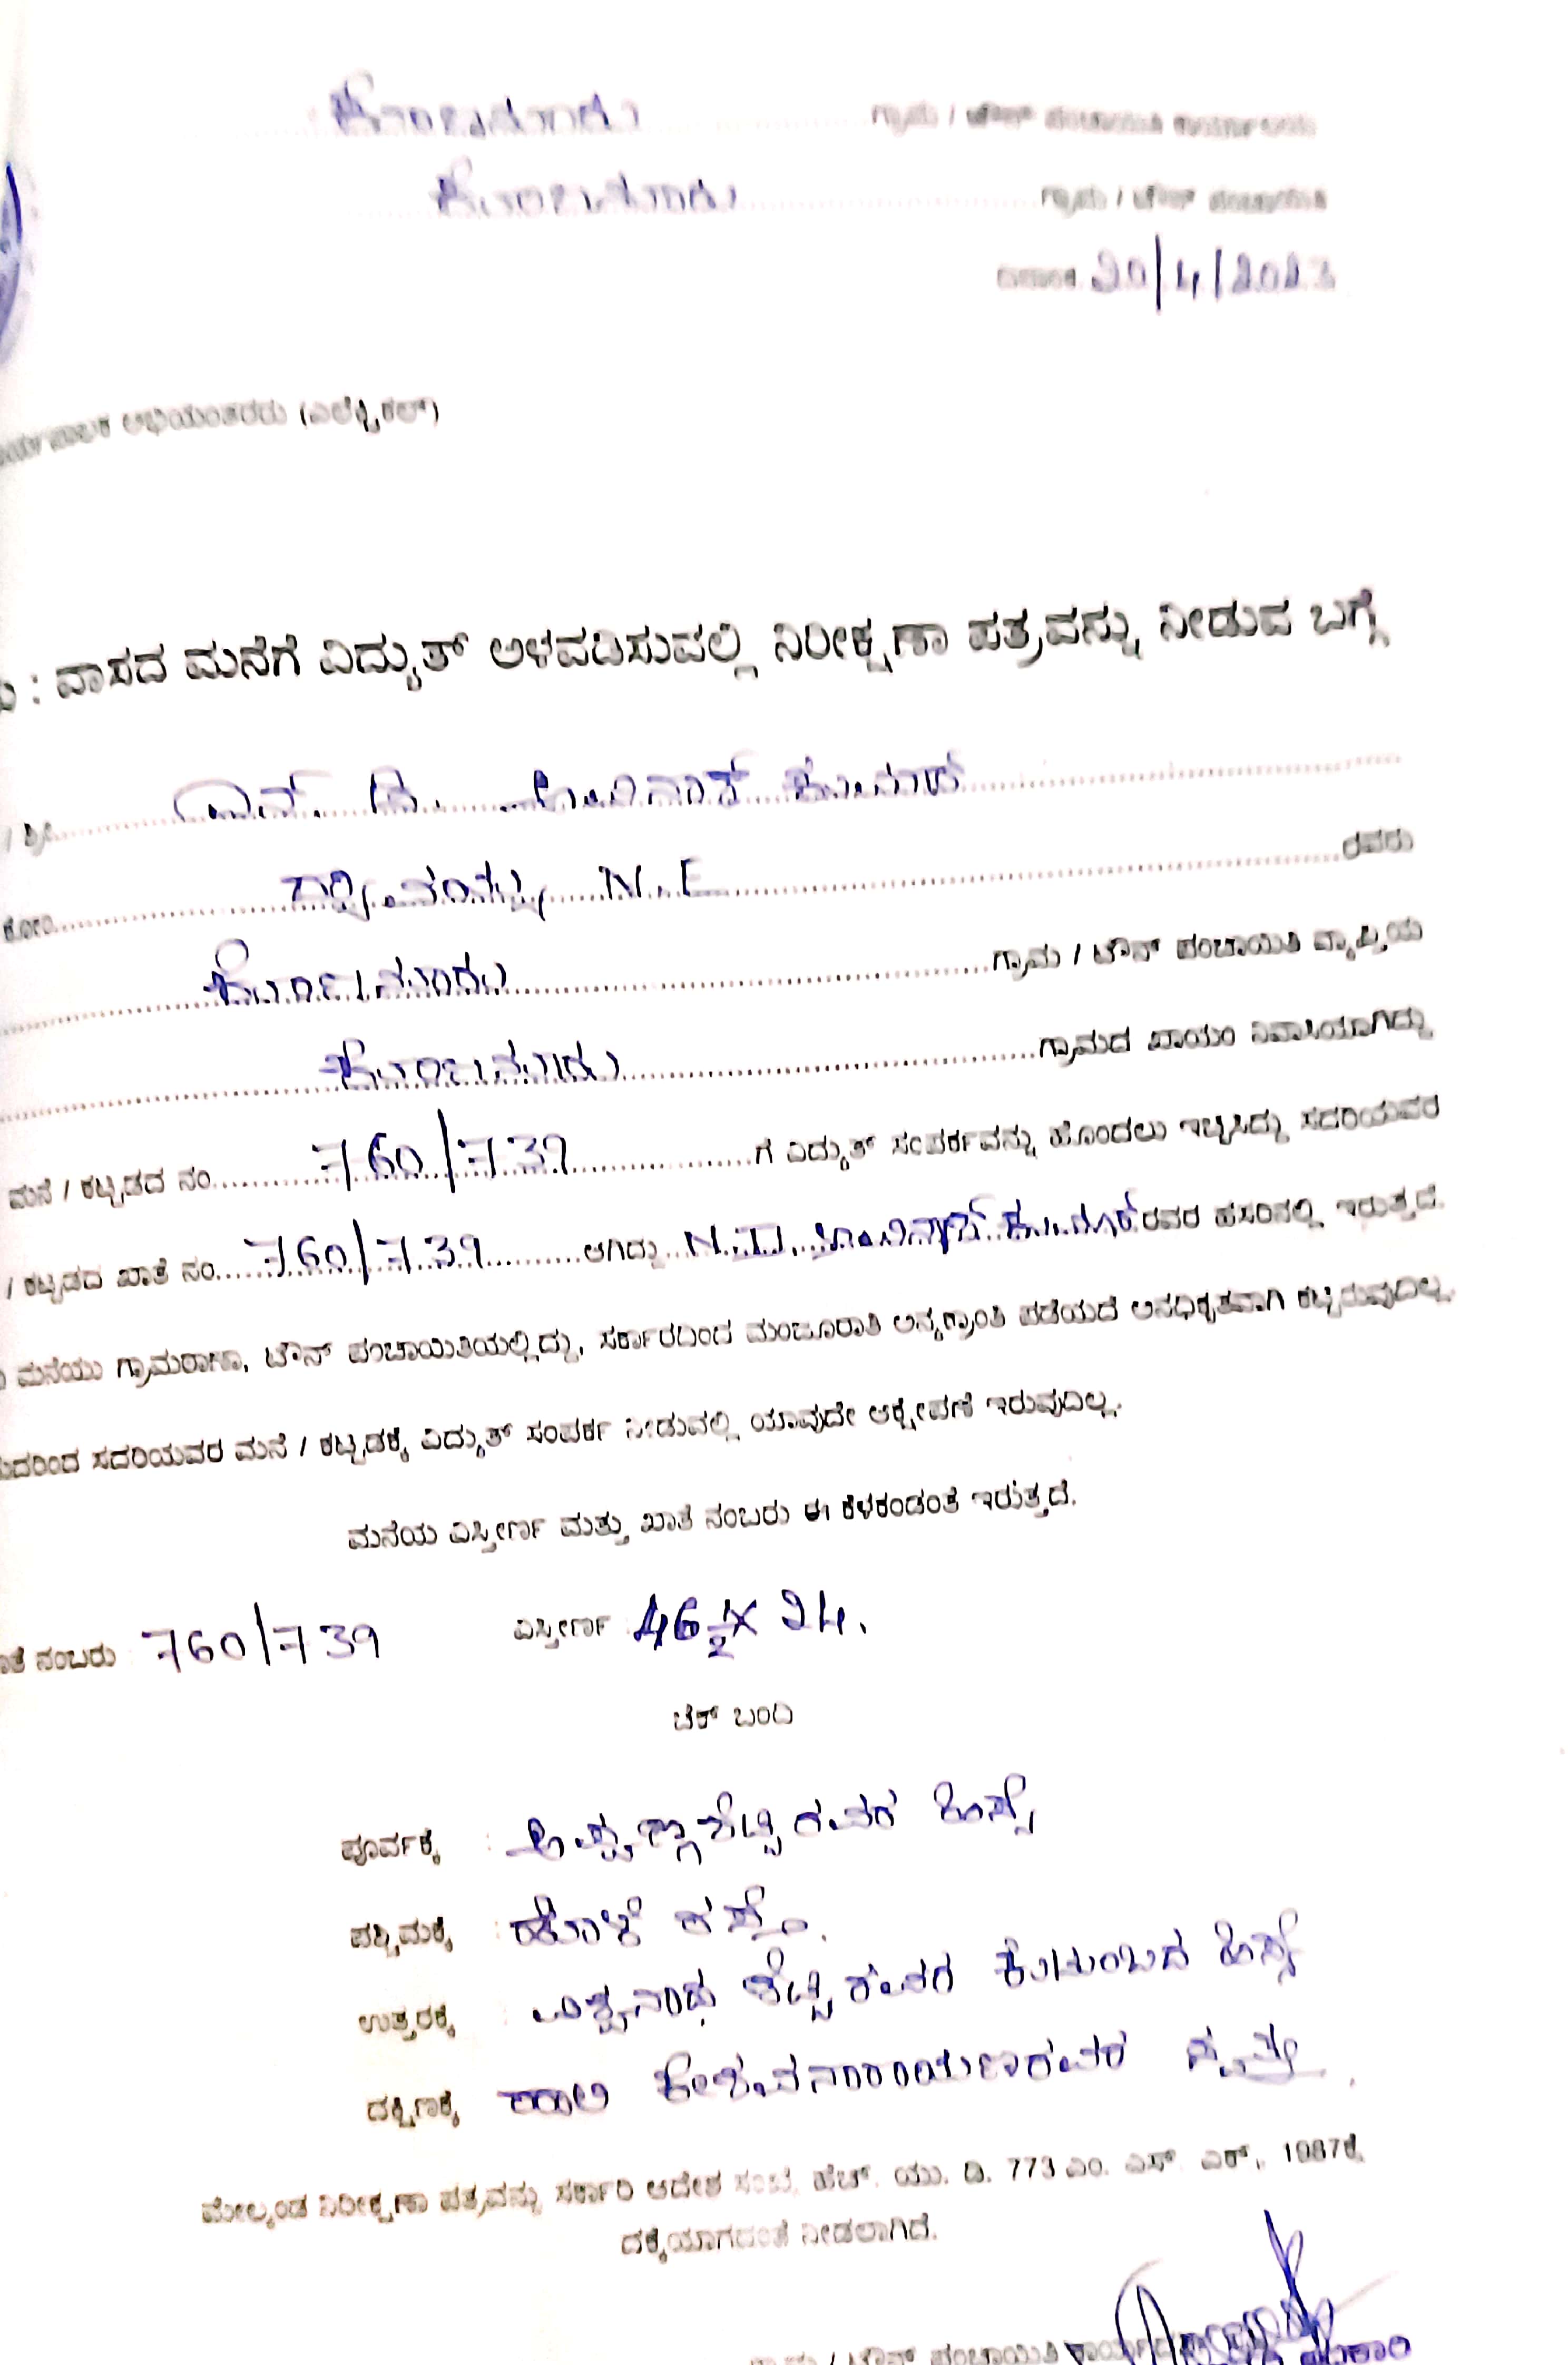 ಕೋಣನೂರು ಗ್ರಾಮ / ಟೌನ್ ಪಂಚಾಯಿತಿ ಕಾರ್ಯಾಲಯ
ಕೋಣನೂರು ಗ್ರಾಮ / ಟೌನ್ ಪಂಚಾಯಿತಿ
ದಿನಾಂಕ 20/4/2023
ಅಭಿಯಂತರರು (ಎಲೆಕ್ಟ್ರಿಕಲ್)
: ವಾಸದ ಮನೆಗೆ ವಿದ್ಯುತ್ ಅಳವಡಿಸುವಲ್ಲಿ ನಿರೀಕ್ಷಣಾ ಪತ್ರವನ್ನು ನೀಡುವ ಬಗ್ಗೆ
/ ಶ್ರೀ ಎನ್. ಡಿ. ಕುಮಾರ್
ಕೋಂ N.E ರವರು
ಕೋಣನೂರು ಗ್ರಾಮ / ಟೌನ್ ಪಂಚಾಯಿತಿ ವ್ಯಾಪ್ತಿಯ
ಕೋಣನೂರು ಗ್ರಾಮದ ಖಾಯಂ ನಿವಾಸಿಯಾಗಿದ್ದು
ಮನೆ / ಕಟ್ಟಡದ ನಂ 760/739 ಗೆ ವಿದ್ಯುತ್ ಸಂಪರ್ಕವನ್ನು ಹೊಂದಲು ಇಚ್ಛಿಸಿದ್ದು ಸದರಿಯವರ
/ ಕಟ್ಟಡದ ಖಾತೆ ನಂ 760/739 ಆಗಿದ್ದು N.D. ಕುಮಾರ್ ರವರ ಹೆಸರಿನಲ್ಲಿ ಇರುತ್ತದೆ.
ಮನೆಯು ಗ್ರಾಮಠಾಣಾ, ಟೌನ್ ಪಂಚಾಯಿತಿಯಲ್ಲಿದ್ದು, ಸರ್ಕಾರದಿಂದ ಮಂಜೂರಾತಿ ಅನ್ಯಕ್ರಾಂತಿ ಪಡೆಯದೆ ಅನಧಿಕೃತವಾಗಿ ಕಟ್ಟಿರುವುದಿಲ್ಲ.
ಸದರಿಯವರ ಮನೆ / ಕಟ್ಟಡಕ್ಕೆ ವಿದ್ಯುತ್ ಸಂಪರ್ಕ ನೀಡುವಲ್ಲಿ ಯಾವುದೇ ಆಕ್ಷೇಪಣೆ ಇರುವುದಿಲ್ಲ.
ಮನೆಯ ವಿಸ್ತೀರ್ಣ ಮತ್ತು ಖಾತೆ ನಂಬರು ಈ ಕೆಳಕಂಡಂತೆ ಇರುತ್ತದೆ.
ನಂಬರು 760/739 ವಿಸ್ತೀರ್ಣ 46 1/2 X 24.
ಚೆಕ್ ಬಂದಿ
ಪೂರ್ವಕ್ಕೆ : ಶೆಟ್ಟಿರವರ ಹಿಸ್ಸೆ
ಪಶ್ಚಿಮಕ್ಕೆ : ಹೊಳೆ ರಸ್ತೆ.
ಉತ್ತರಕ್ಕೆ : ವಿಶ್ವನಾಥ ಶೆಟ್ಟಿರವರ ಕುಟುಂಬದ ಹಿಸ್ಸೆ
ದಕ್ಷಿಣಕ್ಕೆ ಕೇಶವನಾರಾಯಣರವರ ಸ್ವತ್ತು.
ಮೇಲ್ಕಂಡ ನಿರೀಕ್ಷಣಾ ಪತ್ರವನ್ನು ಸರ್ಕಾರಿ ಆದೇಶ ಸಂಖ್ಯೆ ಹೆಚ್. ಯು. ಡಿ. 773 ಎಂ. ಎನ್. ಎಕ್., 1987ಕ್ಕೆ
ದಕ್ಕೆಯಾಗದಂತೆ ನೀಡಲಾಗಿದೆ.
ಗ್ರಾಮ / ಟೌನ್ ಪಂಚಾಯಿತಿ